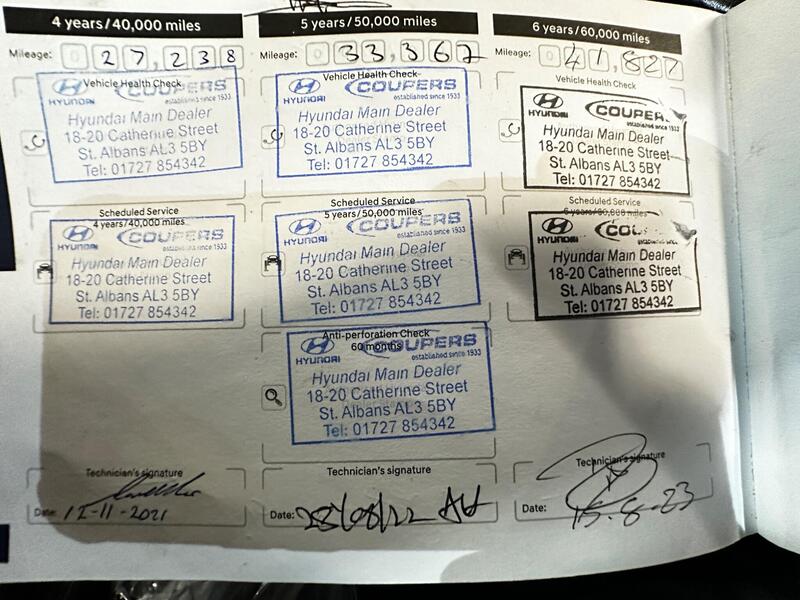 4 years/40,000 miles
Mileage: 0 27,238
Vehicle Health Check
HYUNDAI COUPERS
established since 1933
Hyundai Main Dealer
18-20 Catherine Street
St. Albans AL3 5BY
Tel: 01727 854342
Scheduled Service
4 years/40,000 miles
HYUNDAI COUPERS
established since 1933
Hyundai Main Dealer
18-20 Catherine Street
St. Albans AL3 5BY
Tel: 01727 854342
Technician's signature
Date: 12-11-2021
5 years/50,000 miles
Mileage: 0 33,367
Vehicle Health Check
HYUNDAI COUPERS
established since 1933
Hyundai Main Dealer
18-20 Catherine Street
St. Albans AL3 5BY
Tel: 01727 854342
Scheduled Service
5 years/50,000 miles
HYUNDAI COUPERS
established since 1933
Hyundai Main Dealer
18-20 Catherine Street
St. Albans AL3 5BY
Tel: 01727 854342
Anti-perforation Check
60 months
HYUNDAI COUPERS
established since 1933
Hyundai Main Dealer
18-20 Catherine Street
St. Albans AL3 5BY
Tel: 01727 854342
Technician's signature
Date: 28/08/22
6 years/60,000 miles
Mileage: 0 41,827
Vehicle Health Check
HYUNDAI COUPER
established since 1933
Hyundai Main Dealer
18-20 Catherine Street
St. Albans AL3 5BY
Tel: 01727 854342
Scheduled Service
6 years/60,000 miles
HYUNDAI COU
Hyundai Main Dealer
18-20 Catherine Street
St. Albans AL3 5BY
Tel: 01727 854342
Technician's signature
Date: 15-8-23